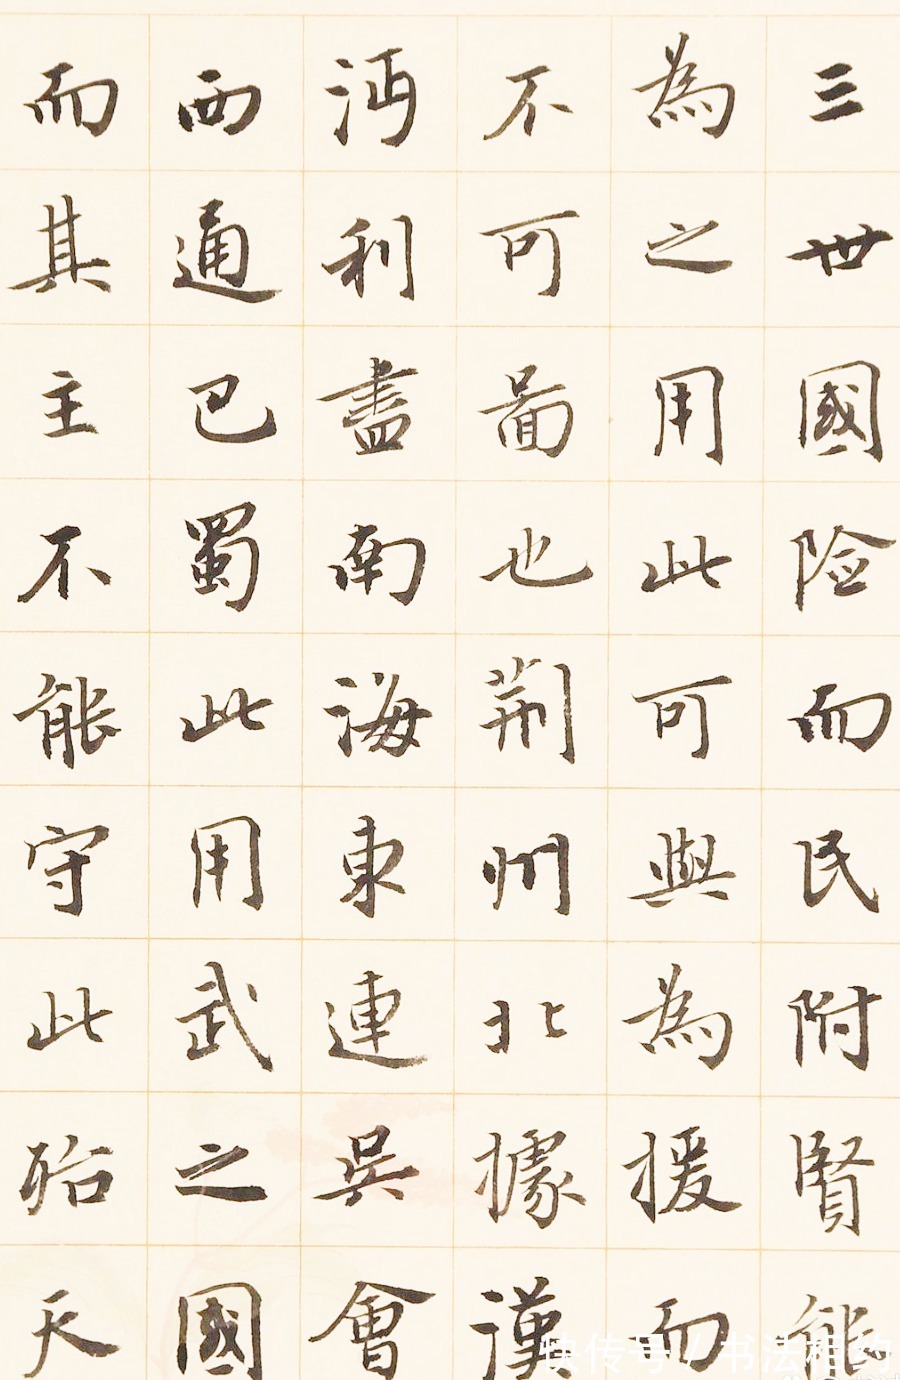 三世國险而民附賢能
為之用此可與為援而
不可啚也荆州北據漢
沔利盡南海東連吳會
西通巴蜀此用武之國
而其主不能守此殆天
快传号 / 书法相约